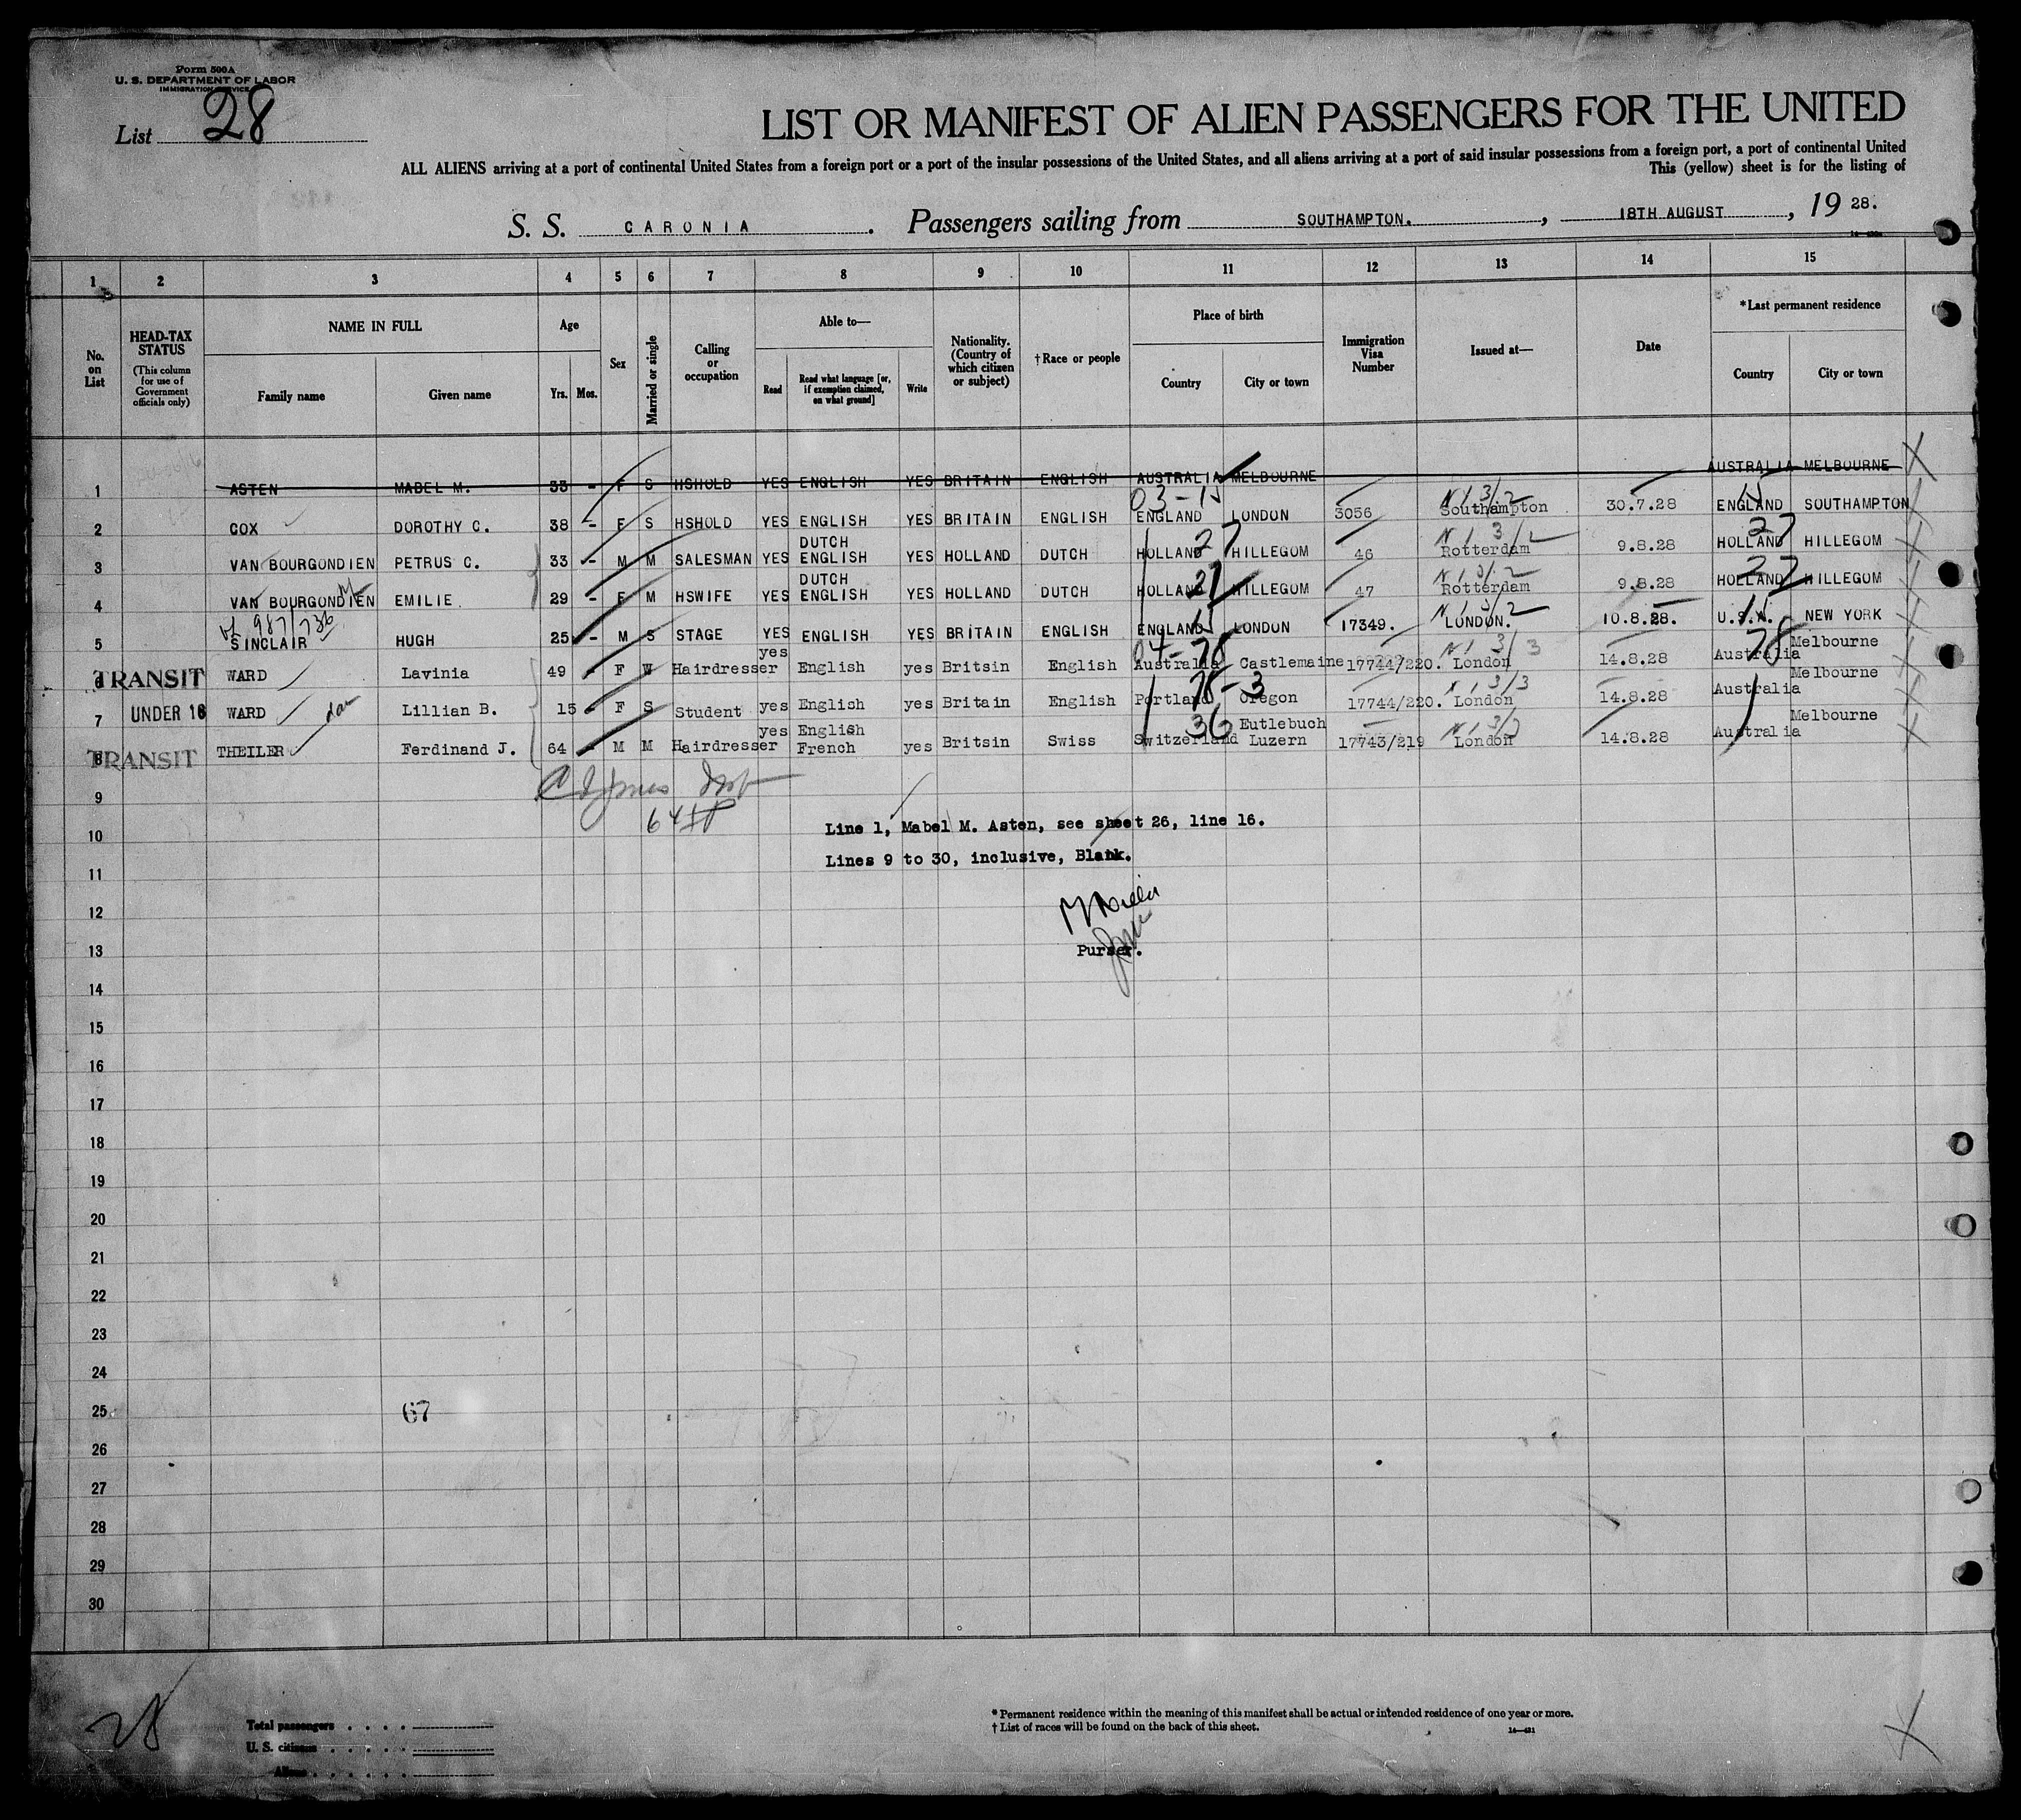 Form 500A
U. S. DEPARTMENT OF LABOR
IMMIGRATION SERVICE
List 28
LIST OR MANIFEST OF ALIEN PASSENGERS FOR THE UNITED
ALL ALIENS arriving at a port of continental United States from a foreign port or a port of the insular possessions of the United States, and all aliens arriving at a port of said insular possessions from a foreign port, a port of continental United
This (yellow) sheet is for the listing of
S. S. CARONIA. Passengers sailing from SOUTHAMPTON., 18TH AUGUST, 19 28.
1 2 3 4 5 6 7 8 9 10 11 12 13 14 15
No. on List
HEAD-TAX STATUS (This column for use of Government officials only)
NAME IN FULL
Family name Given name
Age
Yrs. Mos.
Sex
Married or single
Calling or occupation
Able to—
Read
Read what language [or, if exemption claimed, on what ground]
Write
Nationality. (Country of which citizen or subject)
†Race or people
Place of birth
Country City or town
Immigration Visa Number
Issued at—
Date
*Last permanent residence
Country City or town
1 ASTEN MABEL M. 33 - F S HSHOLD YES ENGLISH YES BRITAIN ENGLISH AUSTRALIA MELBOURNE AUSTRALIA MELBOURNE
03-15 N 1 3/2 15
2 COX DOROTHY C. 38 - F S HSHOLD YES ENGLISH YES BRITAIN ENGLISH ENGLAND LONDON 3056 Southampton 30.7.28 ENGLAND SOUTHAMPTON
DUTCH 27 N 1 3/2 27
3 VAN BOURGONDIEN PETRUS C. 33 - M M SALESMAN YES ENGLISH YES HOLLAND DUTCH HOLLAND HILLEGOM 46 Rotterdam 9.8.28 HOLLAND HILLEGOM
DUTCH 27 N 1 3/2 27
4 VAN BOURGONDIEN EMILIE 29 - F M HSWIFE YES ENGLISH YES HOLLAND DUTCH HOLLAND HILLEGOM 47 Rotterdam 9.8.28 HOLLAND HILLEGOM
987/736 15 N 1 3/2
5 SINCLAIR HUGH 25 - M S STAGE YES ENGLISH YES BRITAIN ENGLISH ENGLAND LONDON 17349. LONDON. 10.8.28. U.S.A. NEW YORK
04-78 N 1 3/3 78
6 TRANSIT WARD Lavinia 49 - F W Hairdresser yes English yes Britsin English Australia Castlemaine 17744/220. London 14.8.28 Australia Melbourne
78-3 N 1 3/3
7 UNDER 16 WARD dau Lillian B. 15 - F S Student yes English yes Britain English Portland Oregon 17744/220. London 14.8.28 Australia Melbourne
36 N 1 3/3
8 TRANSIT THEILER Ferdinand J. 64 - M M Hairdresser yes English French yes Britsin Swiss Switzerland Eutlebuch Luzern 17743/219 London 14.8.28 Australia Melbourne
9
10 Line 1, Mabel M. Asten, see sheet 26, line 16.
11 Lines 9 to 30, inclusive, Blank.
12
13 Purser.
14
15
16
17
18
19
20
21
22
23
24
25 67
26
27
28
29
30
28
Total passengers
U. S. citizens
Aliens
* Permanent residence within the meaning of this manifest shall be actual or intended residence of one year or more.
† List of races will be found on the back of this sheet.